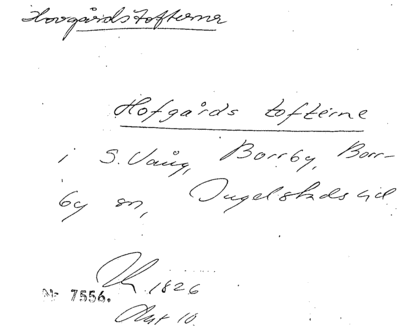 Hovgårdstofterne
Hofgårds tofterne
i S. Vång, Borrby, Borr-
by sn, Ingelstads hd
1826
Nr 7556.
Akt 10.